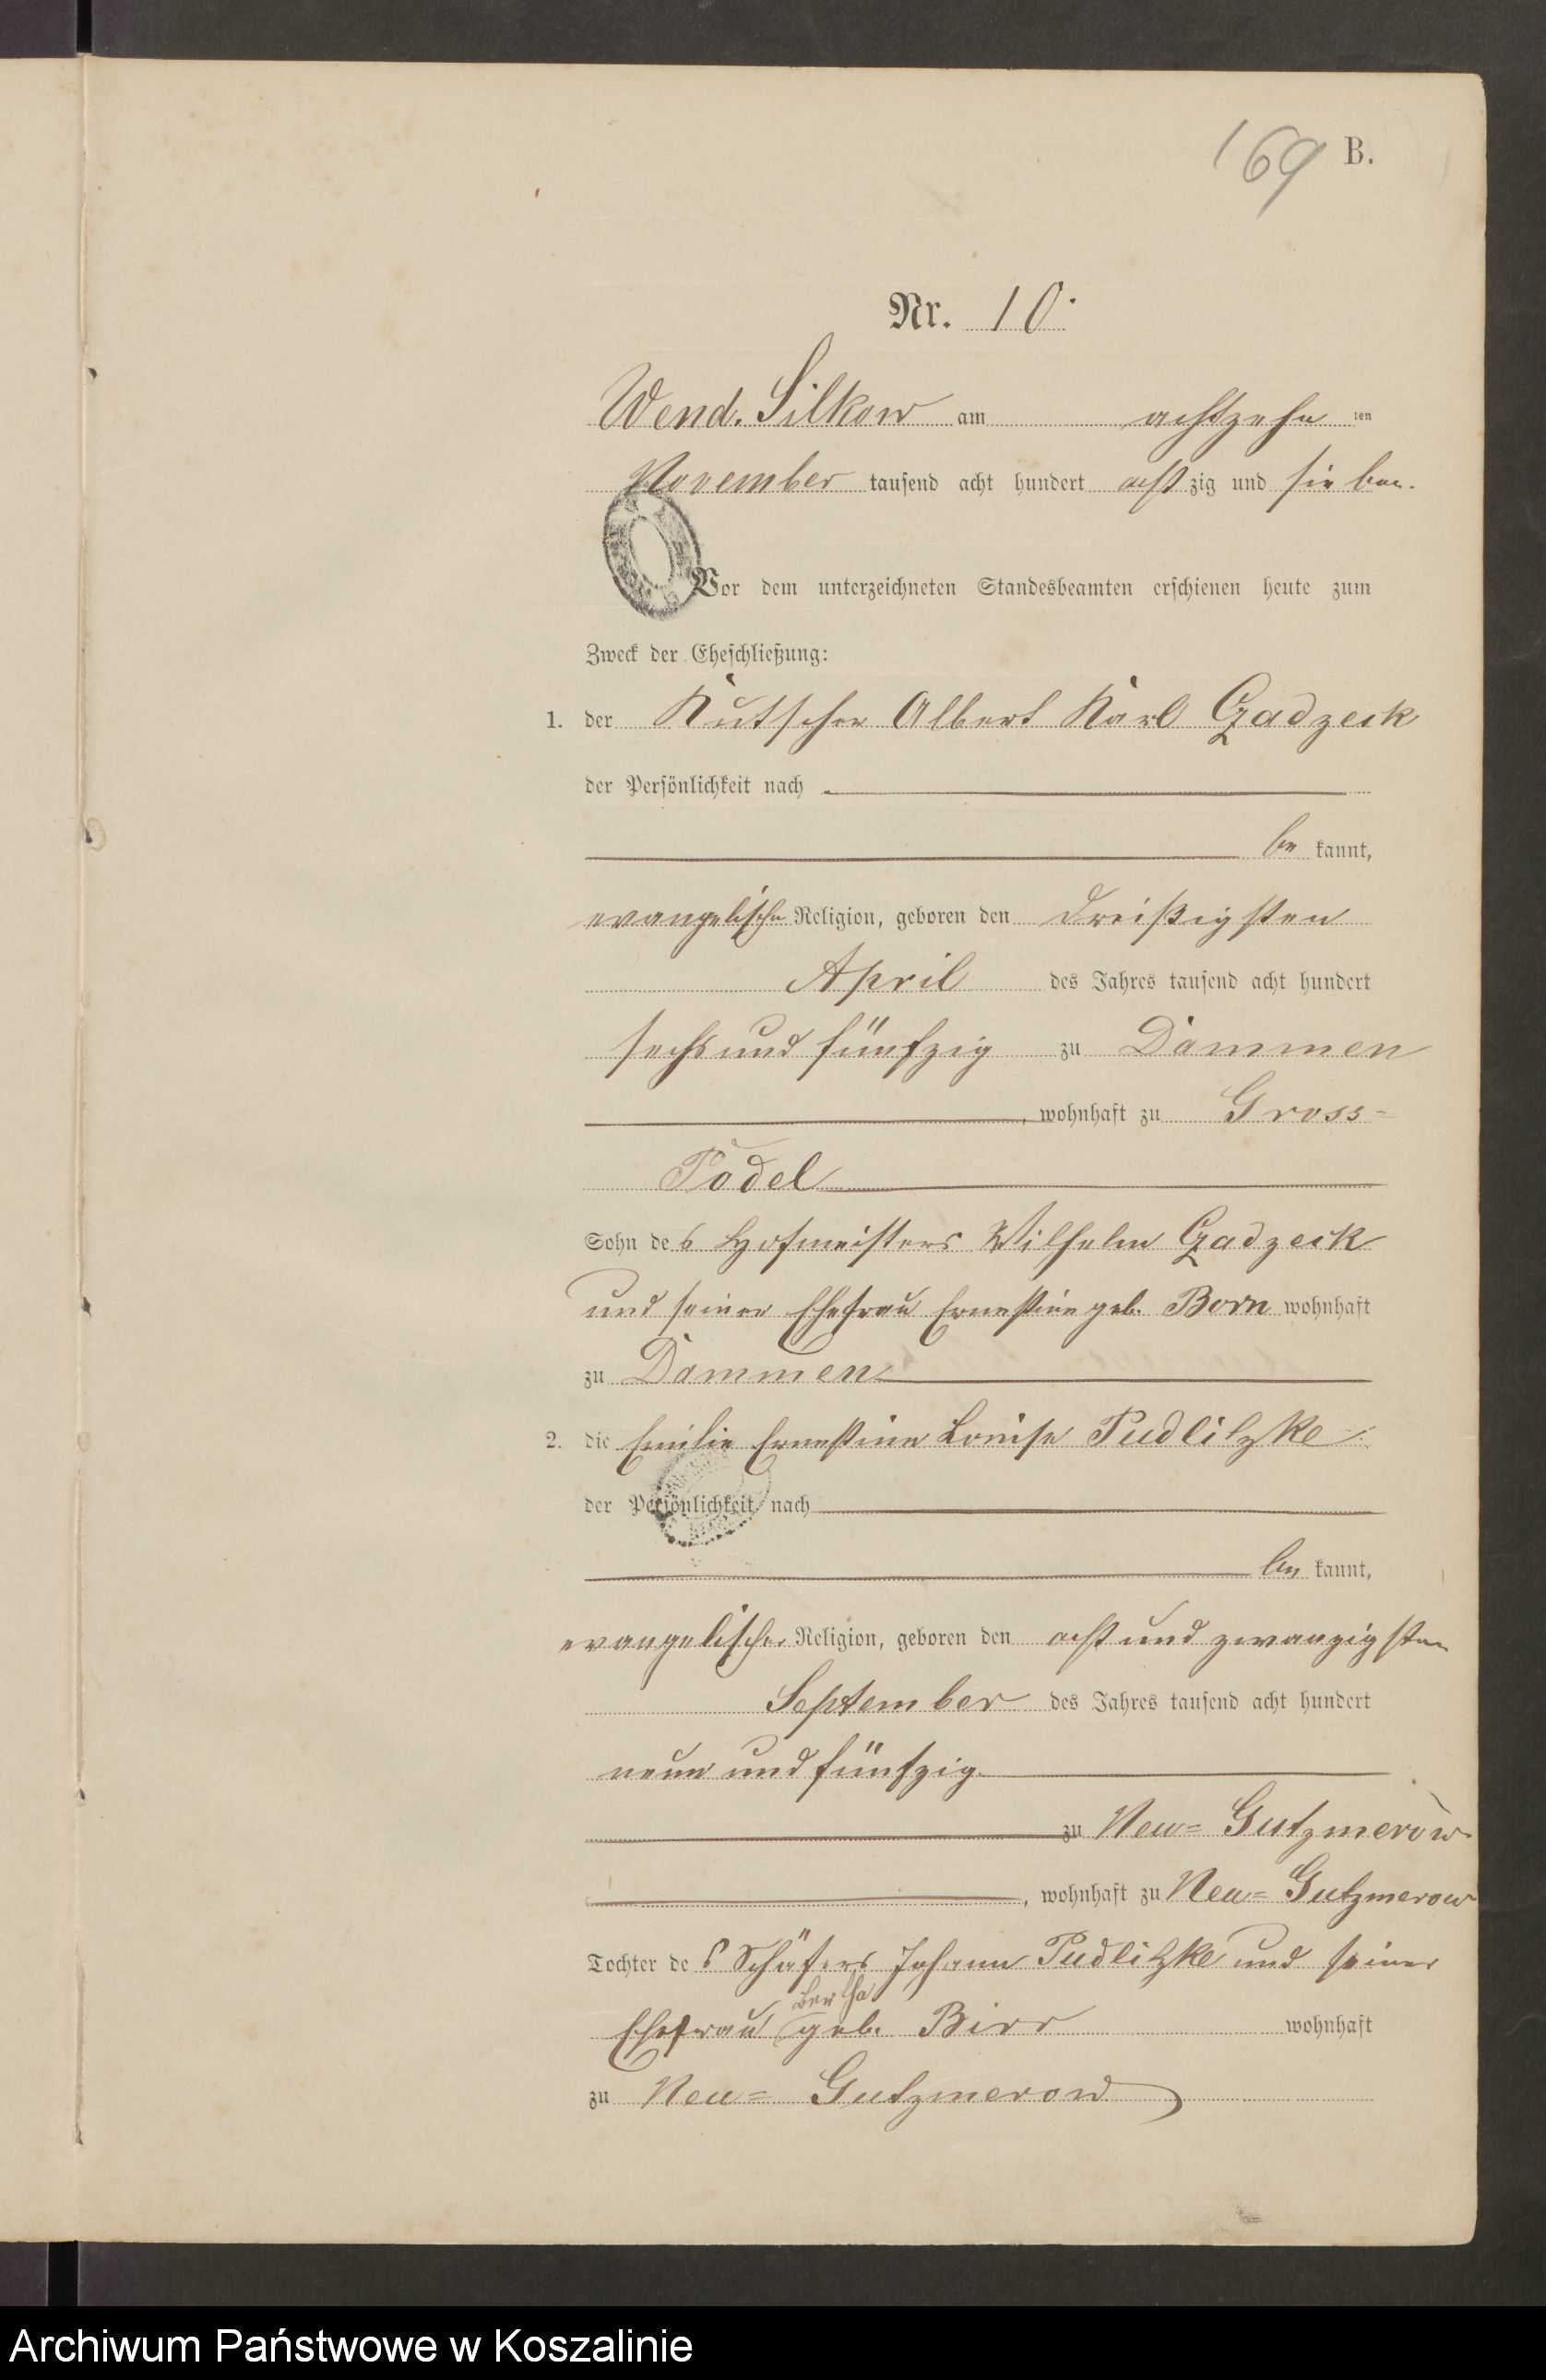 169 B.
Nr. 10.
Wend. Silkow am achtzehn ten
November tausend acht hundert acht zig und sieben.
Vor dem unterzeichneten Standesbeamten erschienen heute zum
Zweck der Eheschließung:
1. der Kutscher Albert Karl Czadzeck
der Persönlichkeit nach
be kannt,
evangelischer Religion, geboren den dreißigsten
April des Jahres tausend acht hundert
sechs und fünfzig zu Dammen
, wohnhaft zu Gross-
Podel
Sohn des Hofmeisters Wilhelm Czadzeck
und seiner Ehefrau Ernestine geb. Born wohnhaft
zu Dammen
2. die Emilie Ernestine Louise Pudlitzke
der Persönlichkeit nach
be kannt,
evangelischer Religion, geboren den acht und zwanzigsten
September des Jahres tausend acht hundert
neun und fünfzig
zu Neu= Gutzmerow
, wohnhaft zu Neu= Gutzmerow
Tochter des Schäfers Johann Pudlitzke und seiner
Bertha
Ehefrau geb. Birr wohnhaft
zu Neu= Gutzmerow
Archiwum Państwowe w Koszalinie